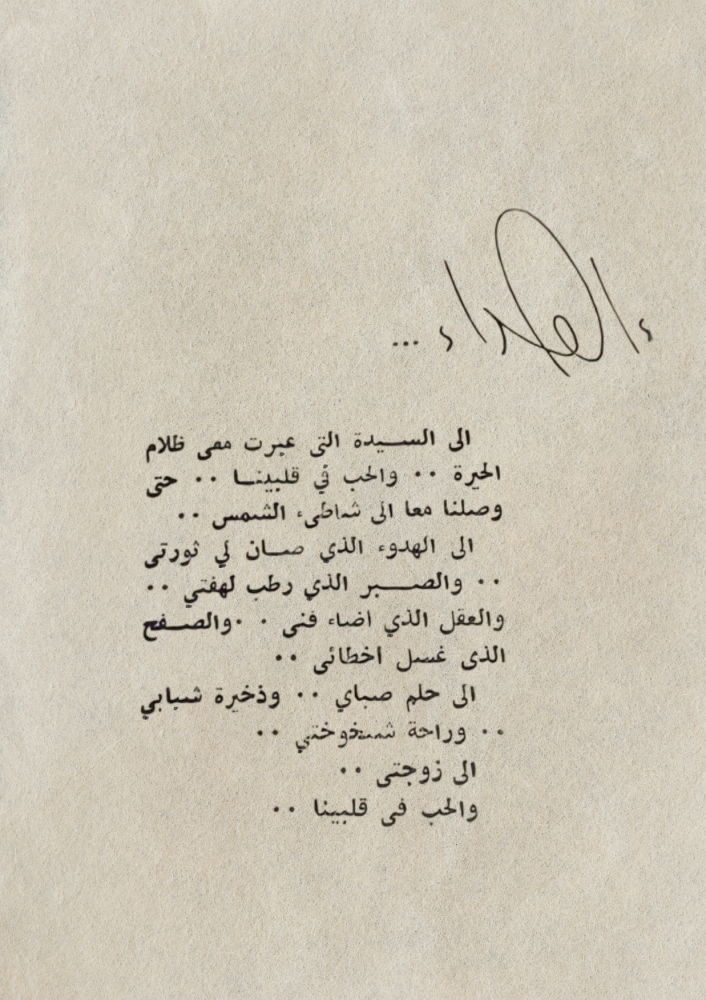 الاهداء ...
الى السيدة التى عبرت معى ظلام
الحيرة .. والحب في قلبينا .. حتى
وصلنا معا الى شاطىء الشمس ..
الى الهدوء الذي صان لي ثورتى
.. والصبر الذي رطب لهفتي ..
والعقل الذي اضاء فنى . .والصفح
الذى غسل أخطائى ..
الى حلم صباي .. وذخيرة شبابي
.. وراحة شيخوختي ..
الى زوجتى ..
والحب فى قلبينا ..